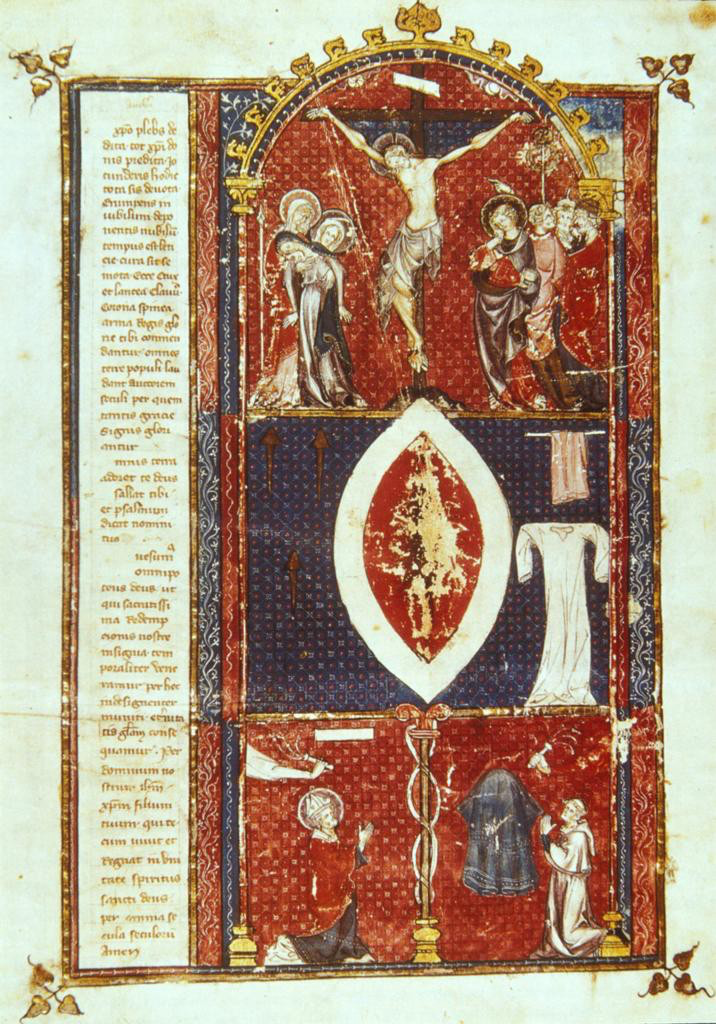 xpo plebs de
dita tot xpi do
nis predita Jo
cunderis hodie
tota sis deuota
Erumpens in
iubilum depo
nentis nubilum
tempus est leti
cie cura sit se
mota Ecce Crux
et lancea Clauus
Corona spinea
arma Regis glo
rie tibi commen
dantur omnes
terre populi lau
dant auctorem
seculi per quem
tantis gracie
signis glori
antur
mnis terra
adoret te deus
psallat tibi
et psalmum
dicat nomini
tuo
q
uesum
omnipo
tens deus ut
qui sacratissi
ma Redemp
cionis nostre
insignia tem
poraliter vene
ramur per hec
indesignenter
muniti eterni
tatis gloriam conse
quamur Per
dominum no
strum ihm
xpm filium
tuum qui te
cum viuit et
Regnat in vni
tate spiritus
sancti deus
per omnia se
cula seculorum
Amen